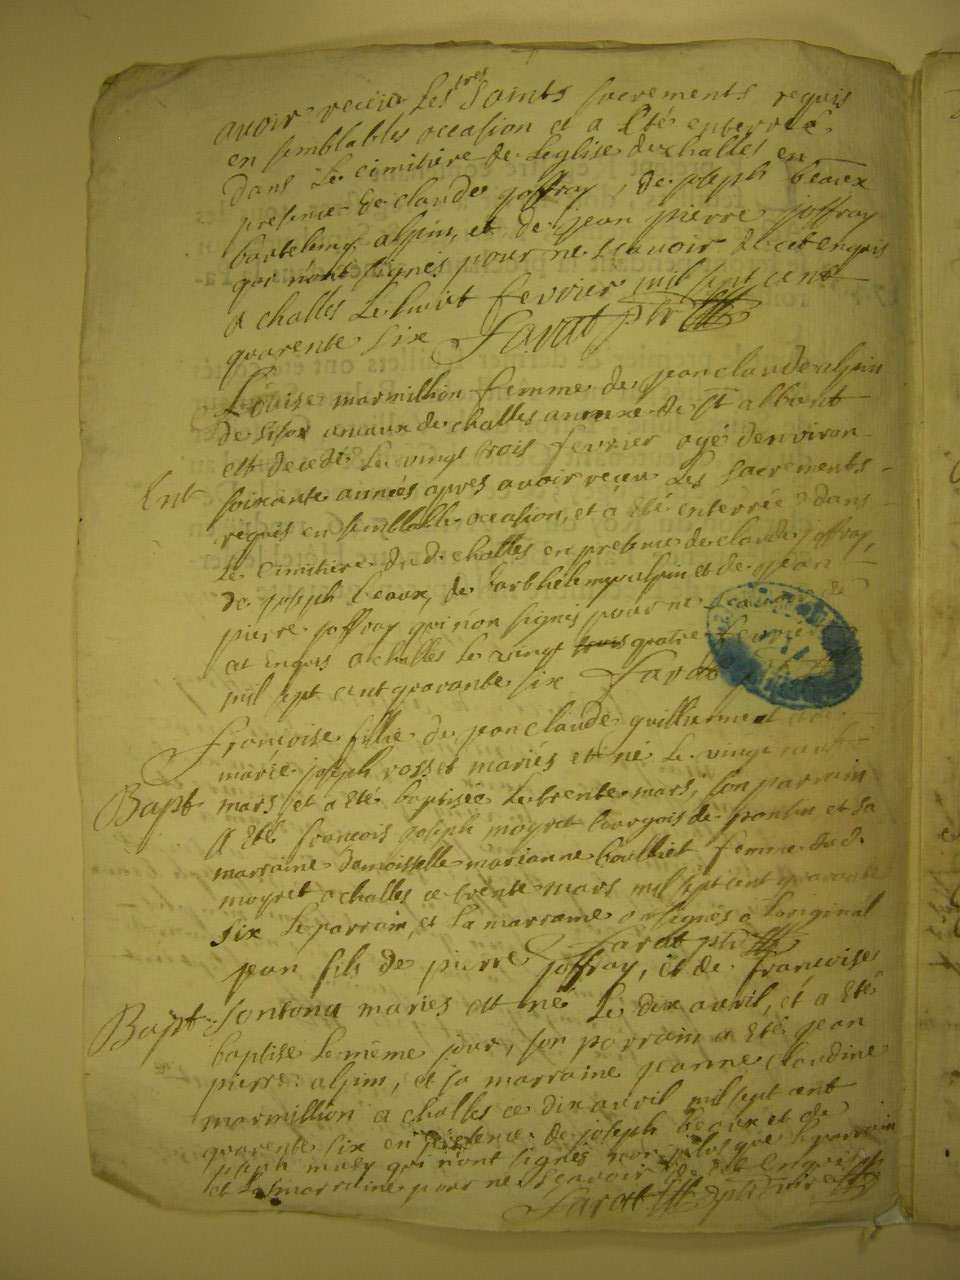 avoir receu Les tres Saints sacrements requis
en semblables occasion et a Eté enterreé
dans Le cimitiere de Leglise de challes en
presence de claude joffray, de joseph beaux
barteleme alpin, et de jean pierre joffray
qui n'ont signés pour ne scavoir de cet enquis
a challes Le huict fevrier mil sept cent
quarente six Farat ptr
Louise marmillion femme de jean claude alpin
de challes annexe de St albent
est decedé Le vingt trois fevrier agé denviron
Ent
soixante années apres avoir receu Les sacrements
requis en semblable occasion, et a eté enterreé dans
Le cimitiere dud. challes en presence de claude joffray,
de joseph beaux, de barthelemy alpin et de jean
pierre joffray qui non signés pour ne scavoir
at enquis a challes Le vingt trois quatre fevrier
mil sept cent quarante six Farat
Françoise fille de jean claude guilliermet et de
marie joseph rosset mariés et né Le vingt neuf
Bapt
mars, et a eté baptisée Le trente mars, son parrain
a Eté françois joseph moyret bourgois de et sa
marraine demoiselle marianne boulliet femme dud.
moyret a challes ce trente mars mil sept cent quarante
six Le parrain, et La marraine on signés a Loriginal
Farat ptr
jean fils de pierre joffray, et de françoise
Bapt
fontona mariés est né Le dix avril, et a eté
baptise Le même jour, son parrain a Eté jean
pierre alpin, et sa marraine jeanne claudine
marmillion a challes ce dix avril mil sept cent
quarente six en presence de joseph beaux et de
joseph qui n'ont signés non plus que Le parrain
et La marraine pour ne scavoir de ce Enquis
Farat ptr